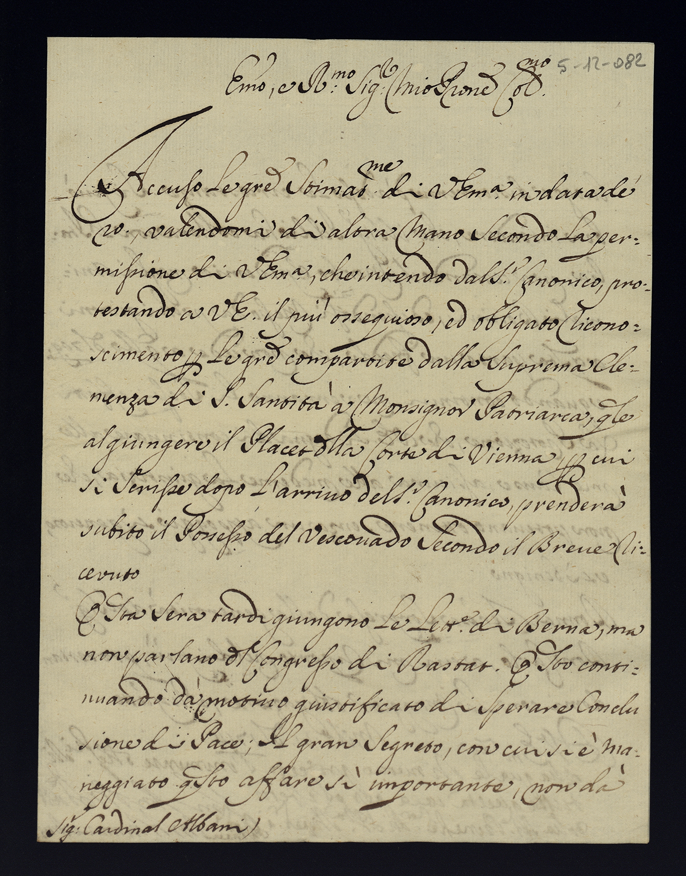 5-12-082
Emo, e Rmo Sigr mio Prone Colmo
Accuso le gre Stimasme di VEma in data de
20, valendomi di altra mano secondo la per-
missione di VEma, che intendo dal Sr Canonico, pro-
testando a VE. il più ossequioso, ed obligato ricono-
scimento p le gre compartite dalla Suprema Cle-
menza di S. Santità à Monsignor Patriarca, qle
al giungere il Placet dlla Corte di Vienna, p cui
si scrisse dopo l'arrivo del Sr Canonico, prenderà
subito il Possesso del Vescovado secondo il Breve ri-
cevuto
Qsta sera tardi giungono le Lettre di Berna, ma
non parlano dl Congresso di Rastat. Qsto conti-
nuando dà motivo giustificato di sperare Conclu
sione di Pace; Il gran segreto, con cui si è ma-
neggiato qsto affare sì importante, non dà
Sigr Cardinal Albani)